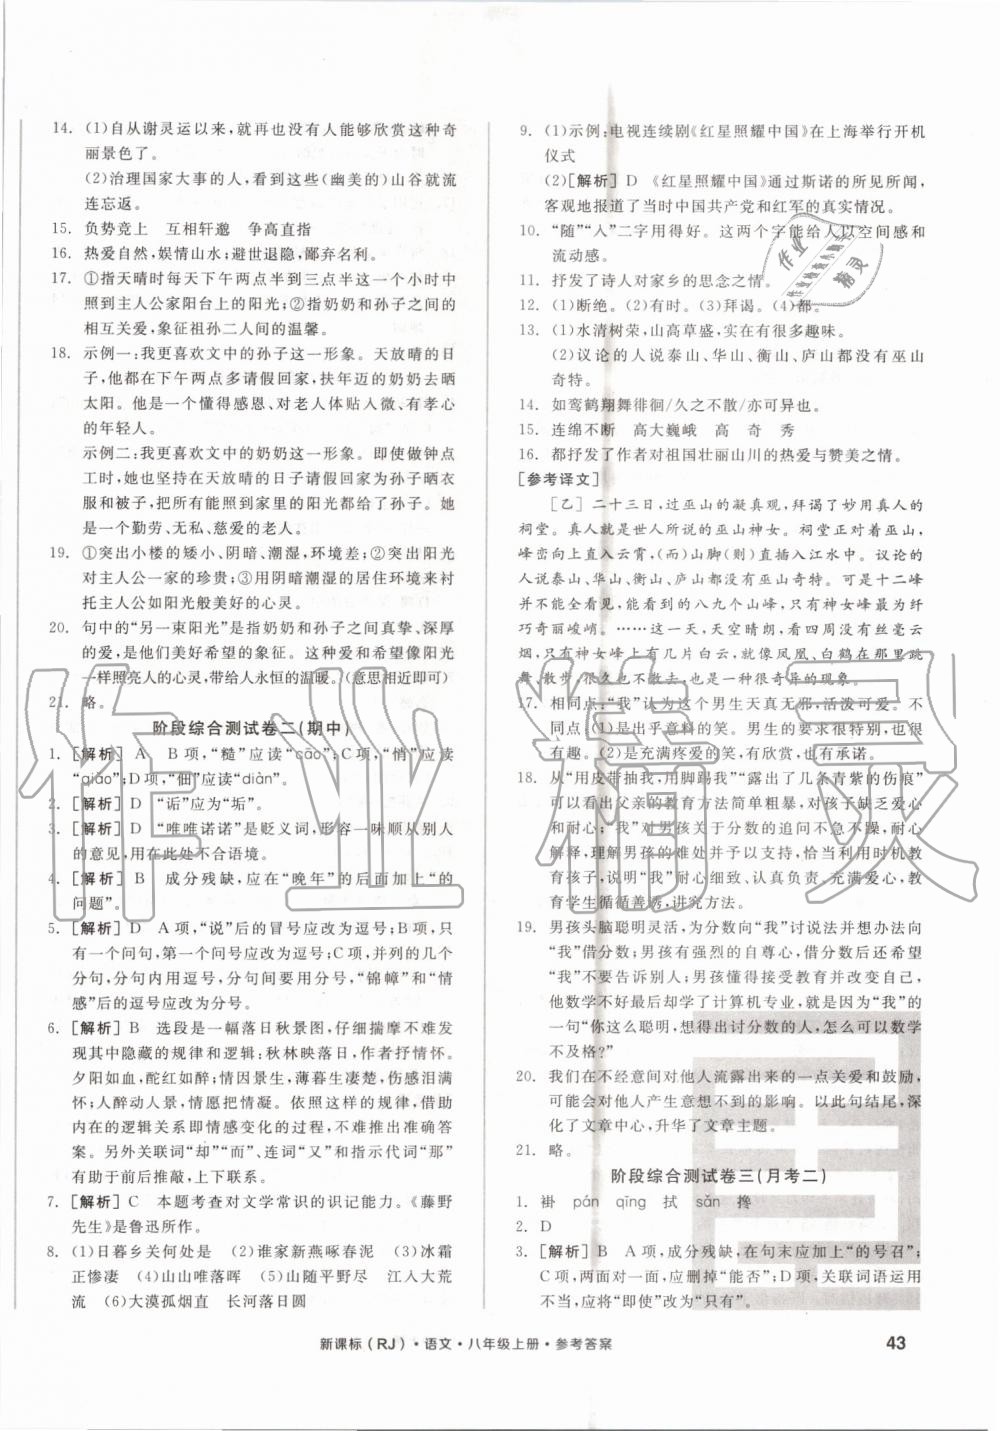 14. (1)自从谢灵运以来,就再也没有人能够欣赏这种奇
丽景色了。
(2)治理国家大事的人,看到这些(幽美的)山谷就流
连忘返。
15. 负势竞上 互相轩邈 争高直指
16. 热爱自然,娱情山水;避世退隐,鄙弃名利。
17. ①指天晴时每天下午两点半到三点半这一个小时中
照到主人公家阳台上的阳光;②指奶奶和孙子之间的
相互关爱,象征祖孙二人间的温馨。
18. 示例一:我更喜欢文中的孙子这一形象。天放晴的日
子,他都在下午两点多请假回家,扶年迈的奶奶去晒
太阳。他是一个懂得感恩、对老人体贴入微、有孝心
的年轻人。
示例二:我更喜欢文中的奶奶这一形象。即使做钟点
工时,她也坚持在天放晴的日子请假回家给孙子晒衣
服和被子,把所有能照到家里的阳光都给了孙子。她
是一个勤劳、无私、慈爱的老人。
19. ①突出小楼的矮小、阴暗、潮湿,环境差;②突出阳光
对主人公一家的珍贵;③用阴暗潮湿的居住环境来衬
托主人公如阳光般美好的心灵。
20. 句中的“另一束阳光”是指奶奶和孙子之间真挚、深厚
的爱,是他们美好希望的象征。这种爱和希望像阳光
一样照亮人的心灵,给带人永恒的温暖。(意思相近即可)
21. 略。
阶段综合测试卷二(期中)
1. [解析] A B项,“糙”应读“cāo”;C项,“悄”应读
“qiǎo”;D项,“钿”应读“diàn”。
2. [解析] D “诟”应为“垢”。
3. [解析] D “唯唯诺诺”是贬义词,形容一味顺从别人
的意见,用在此处不合语境。
4. [解析] B 成分残缺,应在“晚年”的后面加上“的
问题”。
5. [解析] D A项,“说”后的冒号应改为逗号;B项,这
只是一个问句,第一个问号应改为逗号;C项,并列的几个
分句,分句内用逗号,分句间要用分号,“锦幛”和“情
感”后的逗号应改为分号。
6. [解析] B 选段是一幅落日秋景图,仔细揣摩不难发
现其中隐藏的规律和逻辑:秋林映落日,作者抒情怀。
夕阳如血,酡红如醉;情因景生,薄暮生凄楚,伤感满情
怀;人醉动人景,情愿把情凝。依照这样的规律,借助
内在的逻辑关系即情感变化的过程,不难推敲出正确答
案。另外关联词“却”“而”、连词“又”和指示代词“那”
都有助于前后推敲,上下联系。
7. [解析] C 本题考查对文学常识的识记能力。《藤野
先生》是鲁迅所作。
8. (1)日暮乡关何处是 (2)谁家新燕啄春泥 (3)冰霜
正惨凄 (4)山山唯落晖 (5)山随平野尽 江入大荒
流 (6)大漠孤烟直 长河落日圆
9. (1)示例:电视连续剧《红星照耀中国》在上海举行开机
仪式
(2)[解析] D 《红星照耀中国》通过斯诺的所见所闻,
客观地报道了当时中国共产党和红军的真实情况。
10. “随”“入”二字用得好。这两个字能给人以空间感和
流动感。
11. 抒发了诗人对家乡的思念之情。
12. (1)断绝。(2)有时。(3)拜谒。(4)都。
13. (1)水清树荣,山高草盛,实在有很多趣味。
(2)议论的人说泰山、华山、衡山、庐山都没有巫山
奇特。
14. 如鸾鹤翔舞徘徊/久之不散/亦可异也。
15. 连绵不断 高大巍峨 高 奇 秀
16. 都抒发了作者对祖国壮丽山川的热爱与赞美之情。
[参考译文]
[乙] 二十三日,过巫山的凝真观,拜谒了妙用真人的
祠堂。真人就是世人所说的巫山神女。祠堂正对着巫山,
峰峦向上直入云霄,(而)山脚(则)直插入江水中。议论的
人说泰山、华山、衡山、庐山都没有巫山奇特。可是十二峰
并不能全看见,能看到的八九个山峰,只有神女峰最为纤
巧奇丽峻峭。……这一天,天空晴朗,看四周没有丝毫云
烟,只有神女峰上有几片白云,就像凤凰、白鹤在那里跳
舞、散步,很久也不散去,也是一种很奇异的现象。
17. 相同点:“我”认为这个男生天真无邪,活泼可爱。不
同点:(1)是出乎意料的笑。男生的要求很特别,但也
有趣。(2)是充满疼爱的笑,有欣赏,也有承诺。
18. 从“用皮带抽我,用脚踢我”“露出了几条青紫的伤痕”
可以看出父亲的教育方法简单粗暴,对孩子缺乏爱心
和耐心;“我”对男孩关于分数的追问不急不躁,耐心
解释,理解男孩的难处并予以支持,恰当利用时机教
育孩子,说明“我”耐心细致、认真负责、充满爱心、教
育学生循循善诱,讲究方法。
19. 男孩头脑聪明灵活,为分数向“我”讨说法并想办法向
“我”借分数;男孩有强烈的自尊心,借分数后希望
“我”不要告诉别人;男孩懂得接受教育并改变自己,
他数学不好最后却学了计算机专业,都是因为“我”的
一句“你这么聪明,想得出讨分数的人,怎么可以数学
不及格?”
20. 我们在不经意间对他人流露出来的一点关爱和鼓励,
可能会对他人产生意想不到的影响。以此句结尾,深
化了文章中心,升华了文章主题。
21. 略。
阶段综合测试卷三(月考二)
1. 褂 pán qīng 拭 sǎn 搀
2. D
3. [解析] B A项,成分残缺,在句末应加上“的号召”;
C项,两面对一面,应删掉“能否”;D项,关联词语运用
不当,应将“即使”改为“只有”。
新课标(RJ)·语文·八年级上册·参考答案
43
作业精灵